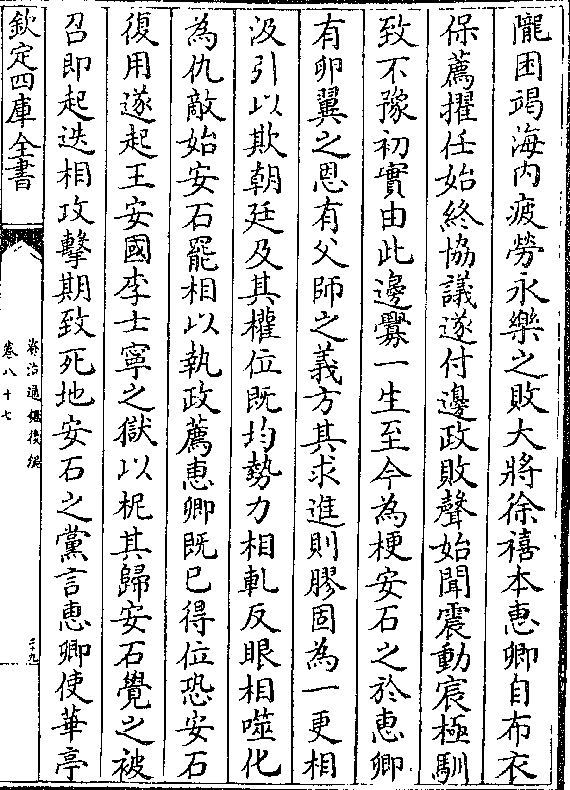 隴困竭海内疲勞永樂之敗大將徐禧本惠卿自布衣
保薦擢任始終協議遂付邊政敗聲始聞震動宸極馴
致不豫初實由此邊釁一生至今為梗安石之於惠卿
有卵翼之恩有父師之義方其求進則膠固為一更相
汲引以欺朝廷及其權位既均勢力相軋反眼相噬化
為仇敵始安石罷相以執政薦惠卿既已得位恐安石
復用遂起王安國李士寧之獄以梔其歸安石覺之被
召即起迭相攻擊期致死地安石之黨言惠卿使華亭
欽定四庫全書
資治通鑑後編
卷八十七
二十九